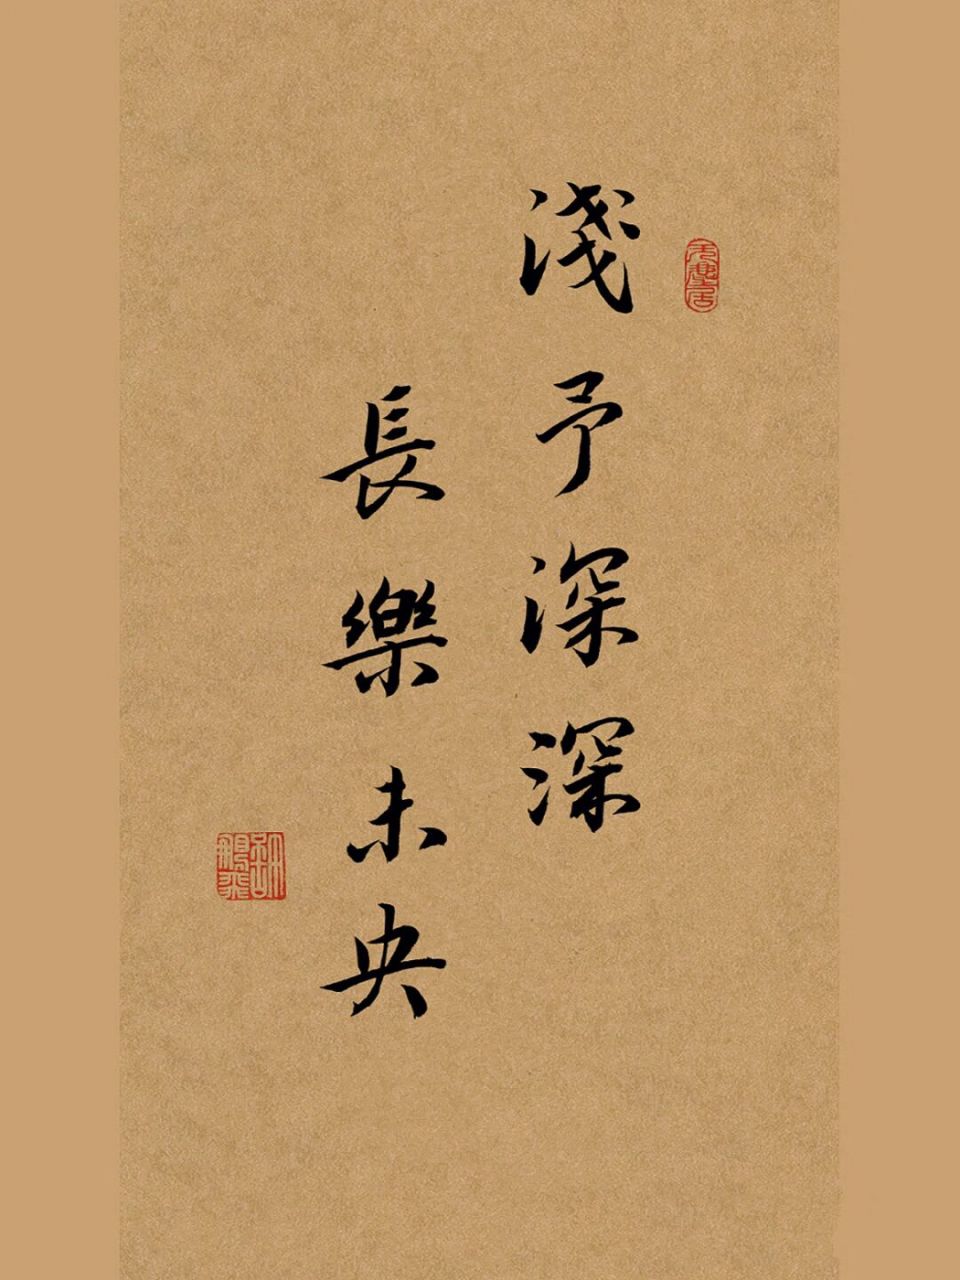 淺予深深
長樂未央